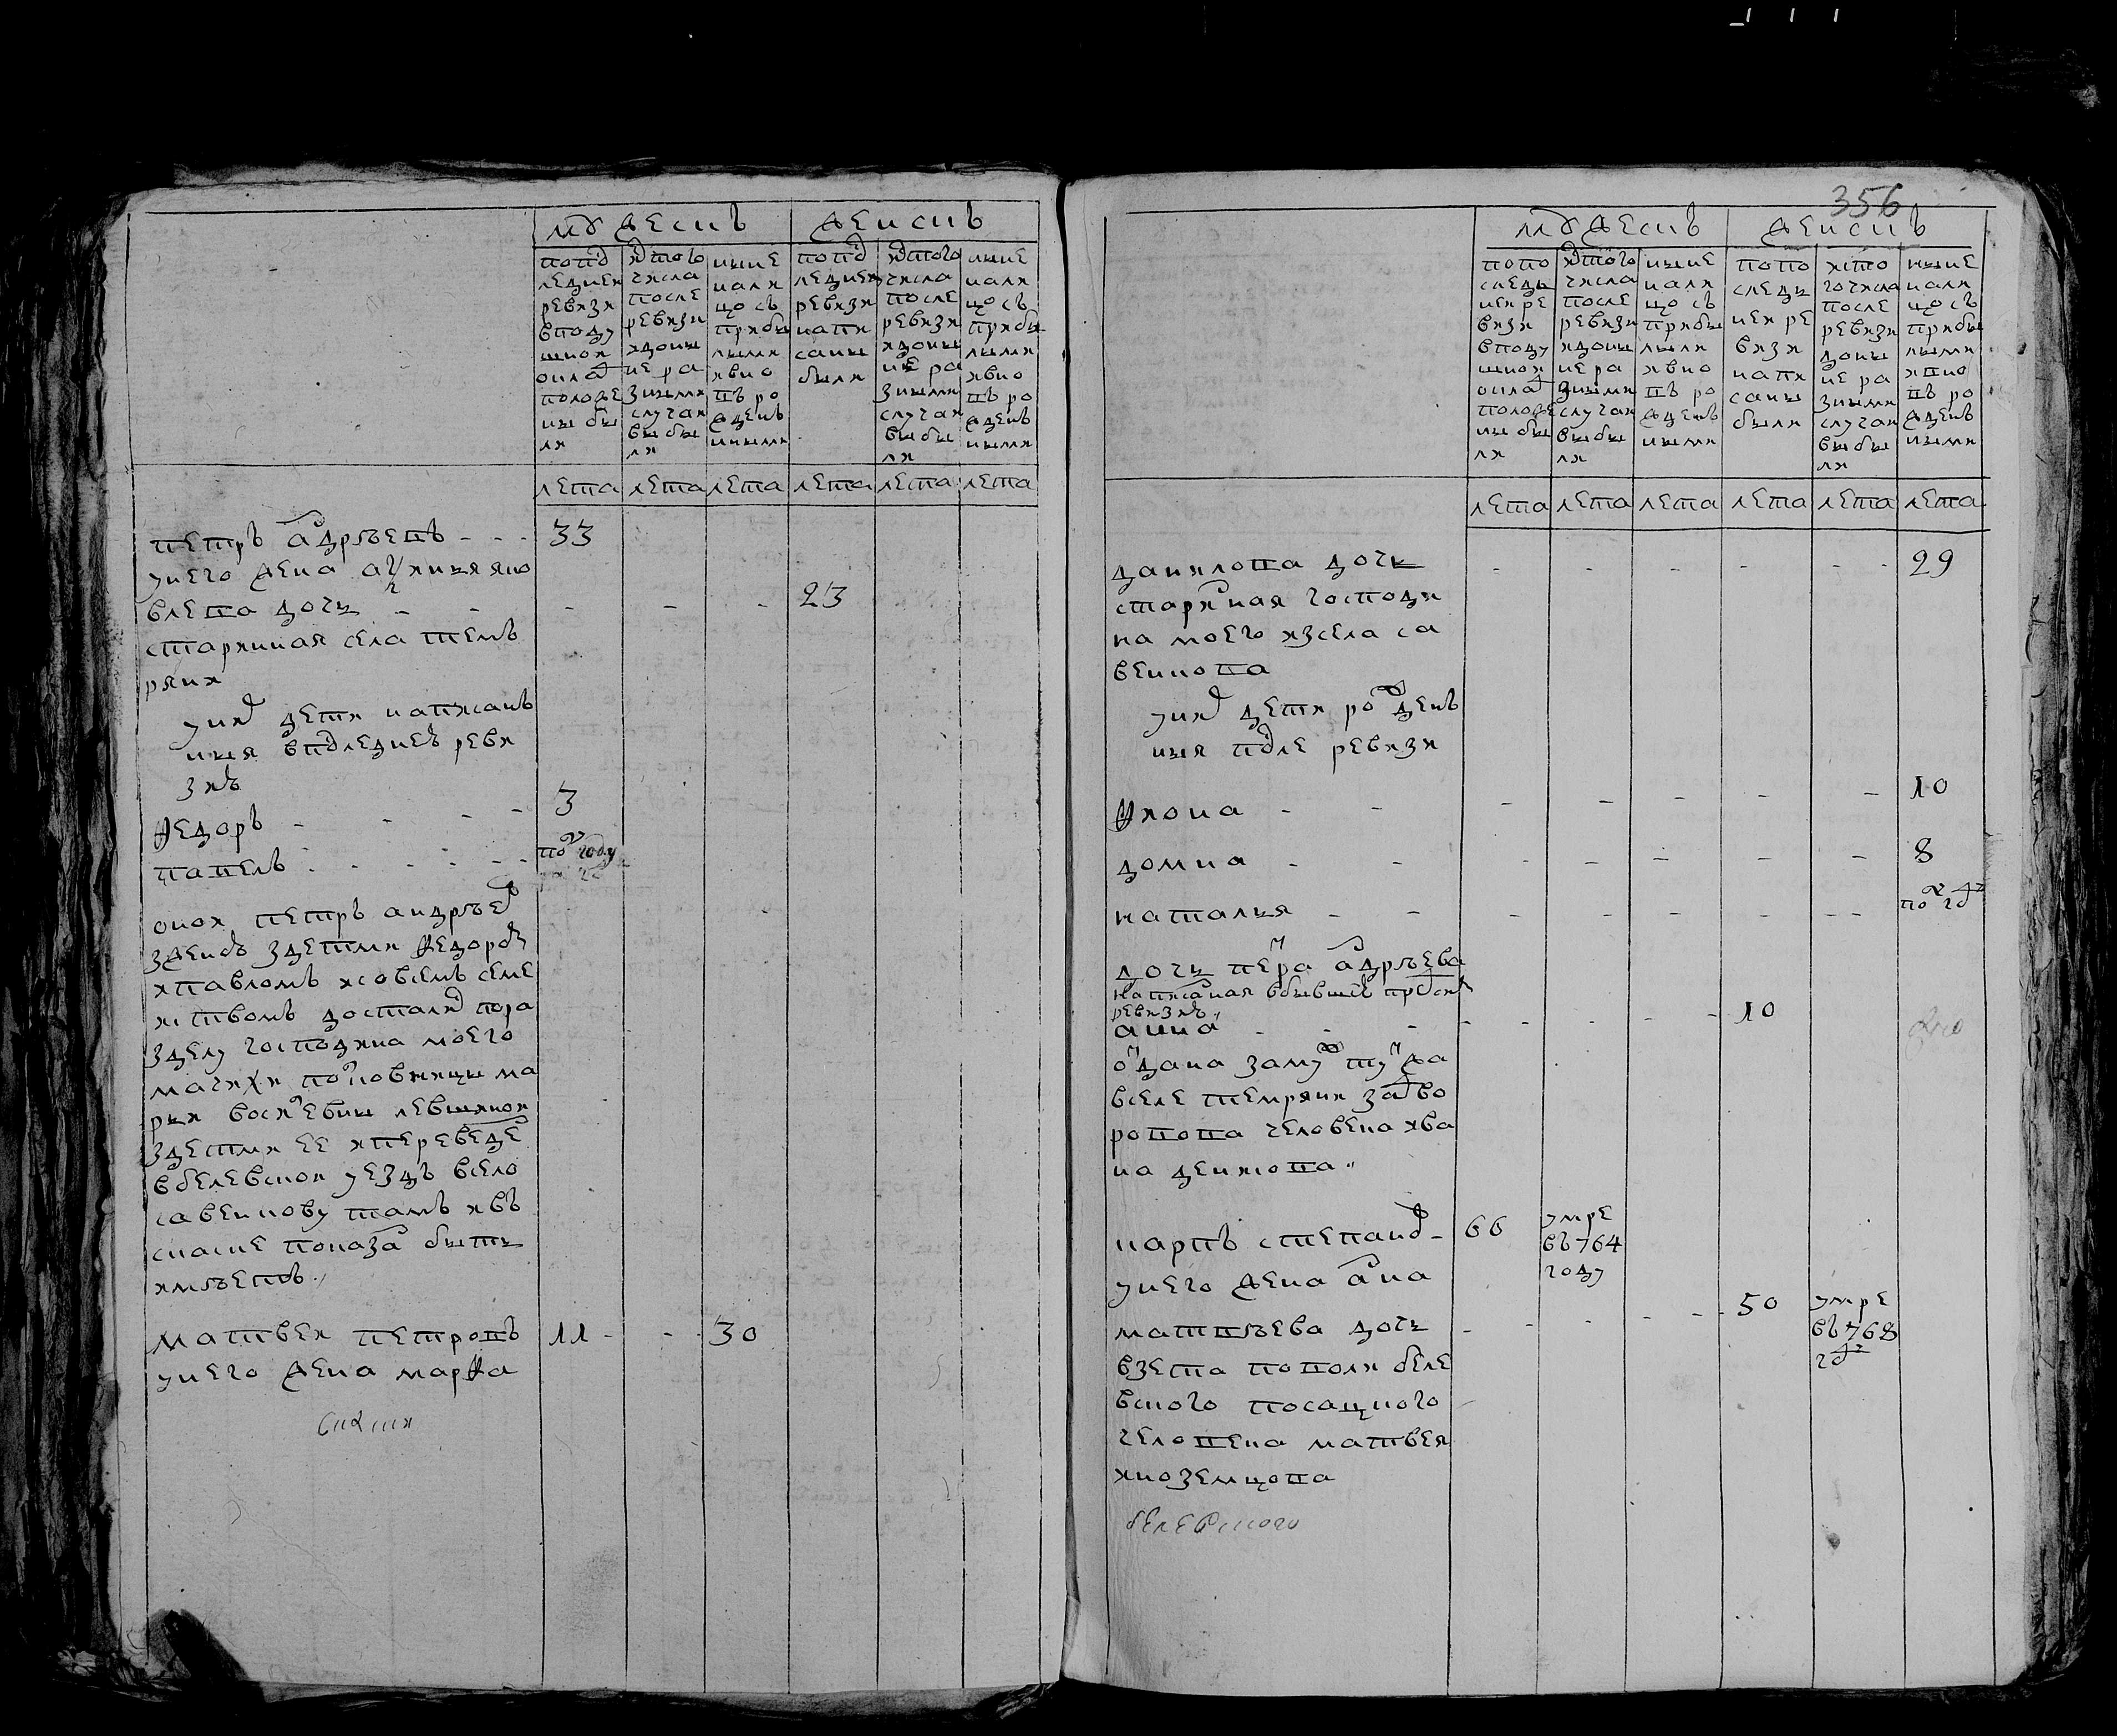 мужескъ
женскъ
попос
ледней
ревизи
вподу
шной
оклад
положе
ны бы
ли
истого
числа
после
ревизи
идоны
не ра
зными
случаи
выбы
ли
ныне
нали
цо съ
прибы
лыми
ивно
въ ро
жденъ
ными
попос
ледней
ревизи
напи
саны
были
истого
числа
после
ревизи
идоны
не ра
зными
случаи
выбы
ли
ныне
нали
цо съ
прибы
лыми
ивно
въ ро
жденъ
ными
лета лета лета лета лета лета
петръ андрѣевъ - - - 33
унего жена
влева дочь - - - - - 23
старинная села темъ
ряни
уних дети написанъ
ныя впоследнеъ реви
зиъ
федоръ - - - - 3
павелъ - - - - - полгоду
оной петръ андрѣев
зженоъ здетми федоромъ
ипавломъ исовсемъ семе
иствомъ достался пора
зделу господина моего
мачихи полковницы ма
рьи василевны левшиной
здетми ее ипереведе
вбелевской уездъ всело
савенкову тамъ ивъ
скаске показан быть
имѣетъ
матвей петровъ 11 - - - 30
унего жена марфа
356
мужескъ
женскъ
попо
следн
ней ре
визи
вподу
шной
оклад
положе
ны бы
ли
истого
числа
после
ревизи
идоны
не ра
зными
случаи
выбы
ли
ныне
нали
цо съ
прибы
лыми
ивно
въ ро
жденъ
ными
попо
следн
ней ре
визи
напи
саны
были
исто
гочисла
после
ревизи
доны
не ра
зными
случаи
выбы
ли
ныне
нали
цо съ
прибы
лыми
ивно
въ ро
жденъ
ными
лета лета лета лета лета лета
данилова дочь - - - - - - 29
стариная господи
на моего изсела са
венкова
уних дети рожденъ
ныя после ревизи
фиона - - - - - - - 10
домна - - - - - - - 8
наталья - - - - - - - - полгоду
дочь петра андрѣева
написаная вбывшеъ пред сихъ
ревизиъ
анна - - - - - - - - 10
отдана замуж тутжа
вселе темряни задво
ровова человека ива
на денисова
карпъ степанов - 66 умре
въ 764
году
унего жена анна
матвѣева дочь - - - - - 50 умре
въ 768
году
взета поволи беле
вского посацкого
человека матвея
иноземцова
белевского